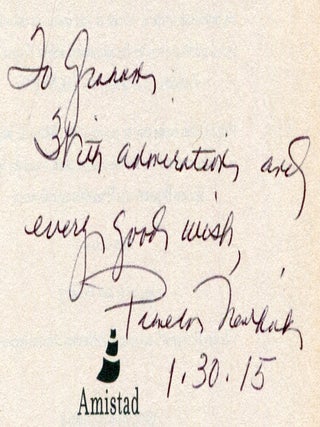 To Graham,
With admiration and
every good wish,
Pamela Newkirk
1.30.15
Amistad